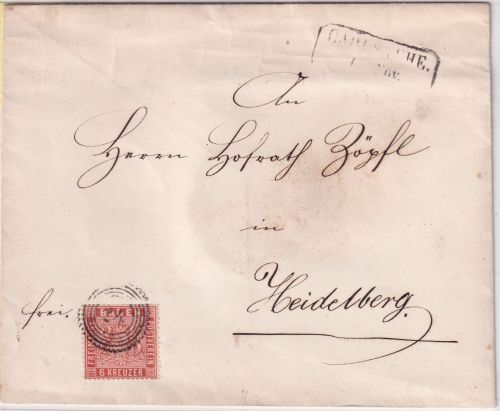 CARLSRUHE.
Nov.
An
Herrn Hofrath Zöpfl
in
Heidelberg.
frei.
BADEN
FREI
POSTVEREIN
6 KREUZER